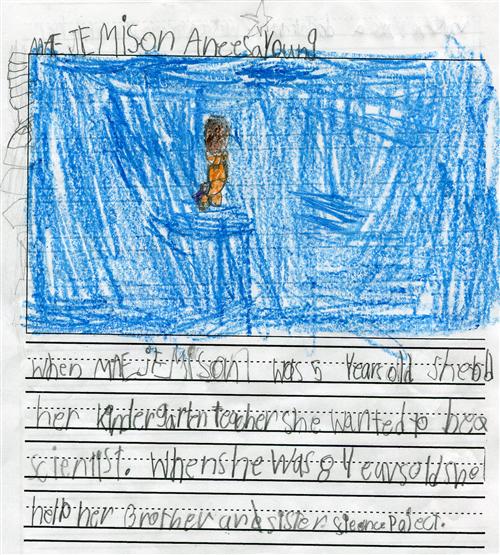 MAE JEMison Aneesa Young
when MAE JEMISON was 5 Years old she
her kindergarten teacher she wanted to be a
scientist. When she was 8 Years old she
help her Brother and sister sience Poject.